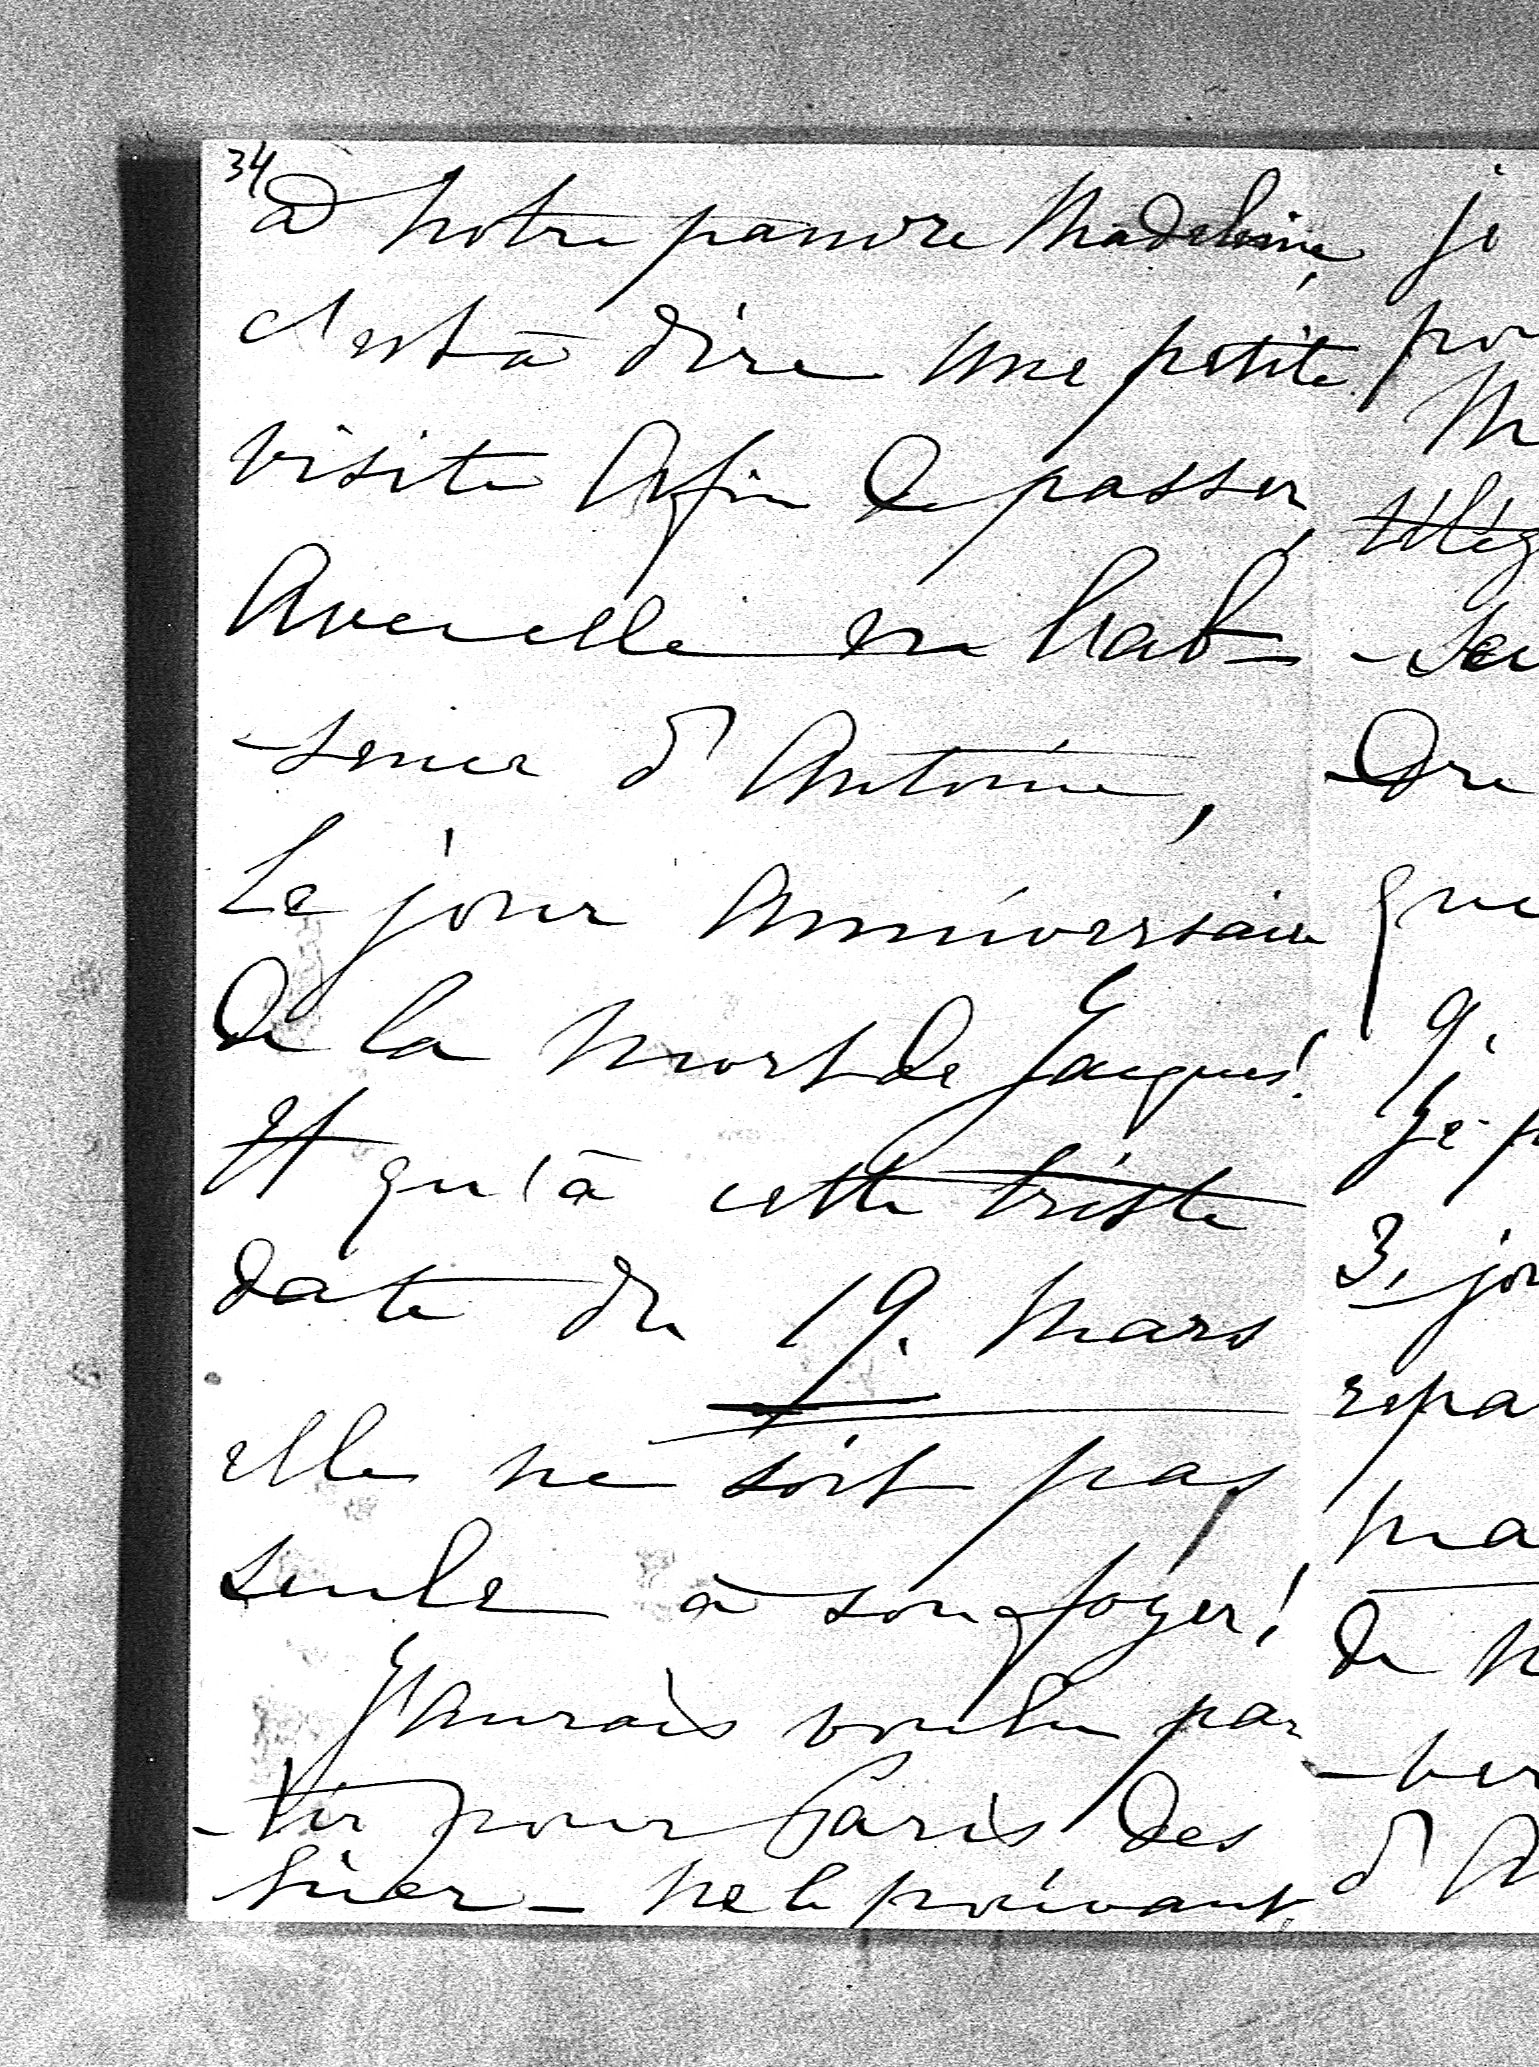 34
à notre pauvre Madeleine,
c'est à dire une petite
visite afin de passer
avec elle en l'ab-
-sence d'Antoine,
le jour anniversaire
de la mort de Jacques!
Et qu'à cette triste
date du 19. mars
elle ne soit pas
seule à son foyer!
J'aurais voulu par
-tir pour Paris des
hier - ne le pouvant
je
3, jou
de